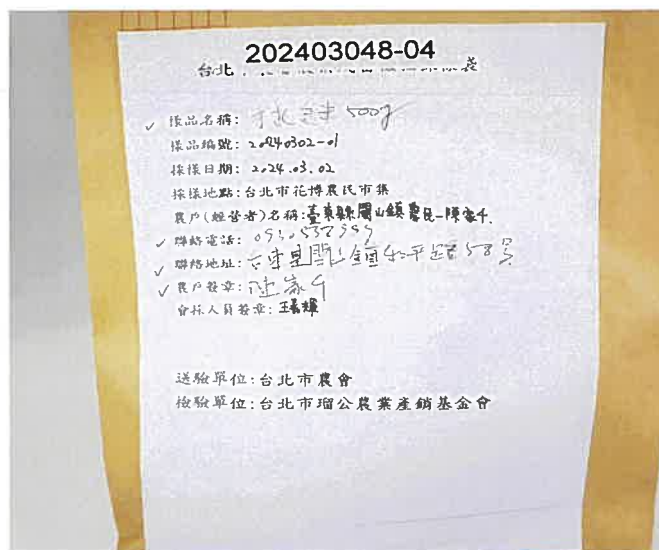 202403048-04
台北
✓ 樣品名稱: 500g
樣品編號: 20240302-01
採樣日期: 2024.03.02
採樣地點:台北市花博農民市集
農戶(經營者)名稱:臺東縣關山鎮農民-陳家千.
✓ 聯絡電話:
✓ 聯絡地址: 台東縣關山鎮和平路58號
✓ 農戶簽章: 陳家千
會採人員簽章: 王義輝
送驗單位:台北市農會
檢驗單位:台北市瑠公農業產銷基金會